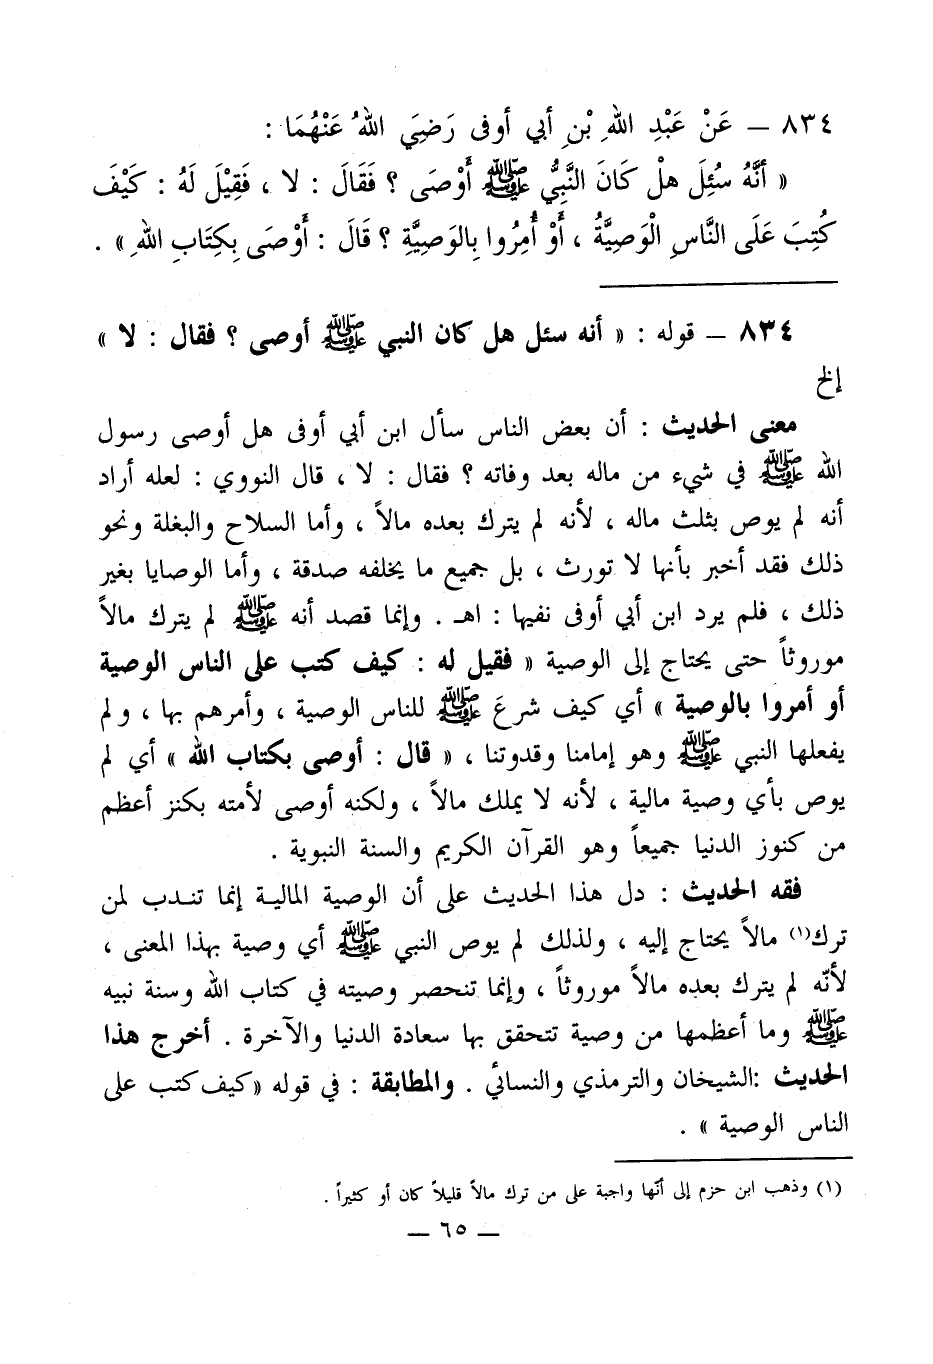 ٨٣٤ – عَنْ عَبْدِ اللهِ بْنِ أبي أوفى رَضِيَ اللهُ عَنْهُمَا :
« أنَّهُ سُئِلَ هلْ كَانَ النَّبِيُّ ﷺ أَوْصَى ؟ فَقَالَ : لا ، فَقِيْلَ لَهُ : كَيْفَ
كُتِبَ عَلَى النَّاسِ الْوَصِيَّةُ ، أَوْ أُمِرُوا بِالوَصِيَّةِ ؟ قَالَ : أَوْصَى بِكِتَابِ اللهِ » .
٨٣٤ – قوله : « أنه سئل هل كان النبي ﷺ أوصى ؟ فقال : لا »
إلخ
معنى الحديث : أن بعض الناس سأل ابن أبي أوفى هل أوصى رسول
الله ﷺ في شيء من ماله بعد وفاته ؟ فقال : لا ، قال النووي : لعله أراد
أنه لم يوص بثلث ماله ، لأنه لم يترك بعده مالاً ، وأما السلاح والبغلة ونحو
ذلك فقد أخبر بأنها لا تورث ، بل جميع ما يخلفه صدقة ، وأما الوصايا بغير
ذلك ، فلم يرد ابن أبي أوفى نفيها : اهـ . وإنما قصد أنه ﷺ لم يترك مالاً
موروثاً حتى يحتاج إلى الوصية « فقيل له : كيف كتب على الناس الوصية
أو أمروا بالوصية » أي كيف شرعَ ﷺ للناس الوصية ، وأمرهم بها ، ولم
يفعلها النبي ﷺ وهو إمامنا وقدوتنا ، « قال : أوصى بكتاب الله » أي لم
يوص بأي وصية مالية ، لأنه لا يملك مالاً ، ولكنه أوصى لأمته بكنز أعظم
من كنوز الدنيا جميعاً وهو القرآن الكريم والسنة النبوية .
فقه الحديث : دل هذا الحديث على أن الوصية المالية إنما تندب لمن
ترك(١) مالاً يحتاج إليه ، ولذلك لم يوص النبي ﷺ أي وصية بهذا المعنى ،
لأنّه لم يترك بعده مالاً موروثاً ، وإنما تنحصر وصيته في كتاب الله وسنة نبيه
ﷺ وما أعظمها من وصية تتحقق بها سعادة الدنيا والآخرة . أخرج هذا
الحديث :الشيخان والترمذي والنسائي . والمطابقة : في قوله « كيف كتب على
الناس الوصية » .
(١) وذهب ابن حزم إلى أنّها واجبة على من ترك مالاً قليلاً كان أو كثيراً .
– ٦٥ –